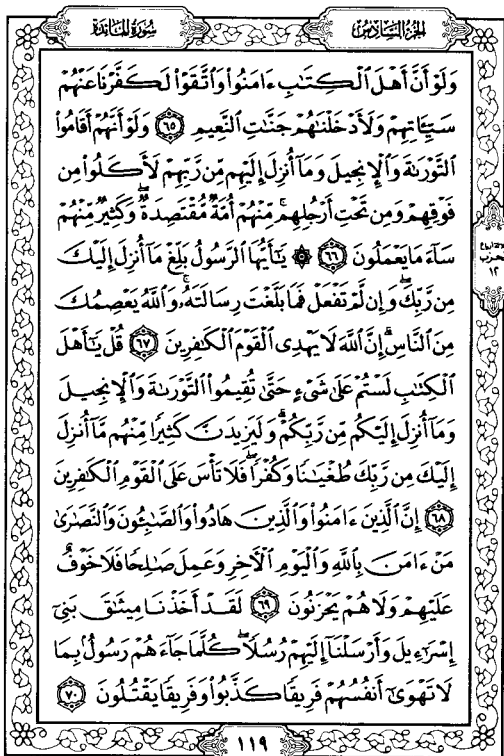 سُورَةُ المَائِدَةِ
الجُزْءُ السَّادِسُ
وَلَوْ أَنَّ أَهْلَ ٱلْكِتَٰبِ ءَامَنُوا۟ وَٱتَّقَوْا۟ لَكَفَّرْنَا عَنْهُمْ
سَيِّـَٔاتِهِمْ وَلَأَدْخَلْنَٰهُمْ جَنَّٰتِ ٱلنَّعِيمِ ٦٥ وَلَوْ أَنَّهُمْ أَقَامُوا۟
ٱلتَّوْرَىٰةَ وَٱلْإِنجِيلَ وَمَآ أُنزِلَ إِلَيْهِم مِّن رَّبِّهِمْ لَأَكَلُوا۟ مِن
فَوْقِهِمْ وَمِن تَحْتِ أَرْجُلِهِم ۚ مِّنْهُمْ أُمَّةٌ مُّقْتَصِدَةٌ ۖ وَكَثِيرٌ مِّنْهُمْ
سَآءَ مَا يَعْمَلُونَ ٦٦ ۞ يَٰٓأَيُّهَا ٱلرَّسُولُ بَلِّغْ مَآ أُنزِلَ إِلَيْكَ
مِن رَّبِّكَ ۖ وَإِن لَّمْ تَفْعَلْ فَمَا بَلَّغْتَ رِسَالَتَهُۥ ۚ وَٱللَّهُ يَعْصِمُكَ
مِنَ ٱلنَّاسِ ۗ إِنَّ ٱللَّهَ لَا يَهْدِى ٱلْقَوْمَ ٱلْكَٰفِرِينَ ٦٧ قُلْ يَٰٓأَهْلَ
ٱلْكِتَٰبِ لَسْتُمْ عَلَىٰ شَىْءٍ حَتَّىٰ تُقِيمُوا۟ ٱلتَّوْرَىٰةَ وَٱلْإِنجِيلَ
وَمَآ أُنزِلَ إِلَيْكُم مِّن رَّبِّكُمْ ۗ وَلَيَزِيدَنَّ كَثِيرًا مِّنْهُم مَّآ أُنزِلَ
إِلَيْكَ مِن رَّبِّكَ طُغْيَٰنًا وَكُفْرًا ۖ فَلَا تَأْسَ عَلَى ٱلْقَوْمِ ٱلْكَٰفِرِينَ
٦٨ إِنَّ ٱلَّذِينَ ءَامَنُوا۟ وَٱلَّذِينَ هَادُوا۟ وَٱلصَّٰبِـُٔونَ وَٱلنَّصَٰرَىٰ
مَنْ ءَامَنَ بِٱللَّهِ وَٱلْيَوْمِ ٱلْـَٔاخِرِ وَعَمِلَ صَٰلِحًا فَلَا خَوْفٌ
عَلَيْهِمْ وَلَا هُمْ يَحْزَنُونَ ٦٩ لَقَدْ أَخَذْنَا مِيثَٰقَ بَنِىٓ
إِسْرَٰٓءِيلَ وَأَرْسَلْنَآ إِلَيْهِمْ رُسُلًا ۖ كُلَّمَا جَآءَهُمْ رَسُولٌۢ بِمَا
لَا تَهْوَىٰٓ أَنفُسُهُمْ فَرِيقًا كَذَّبُوا۟ وَفَرِيقًا يَقْتُلُونَ ٧٠
١١٩